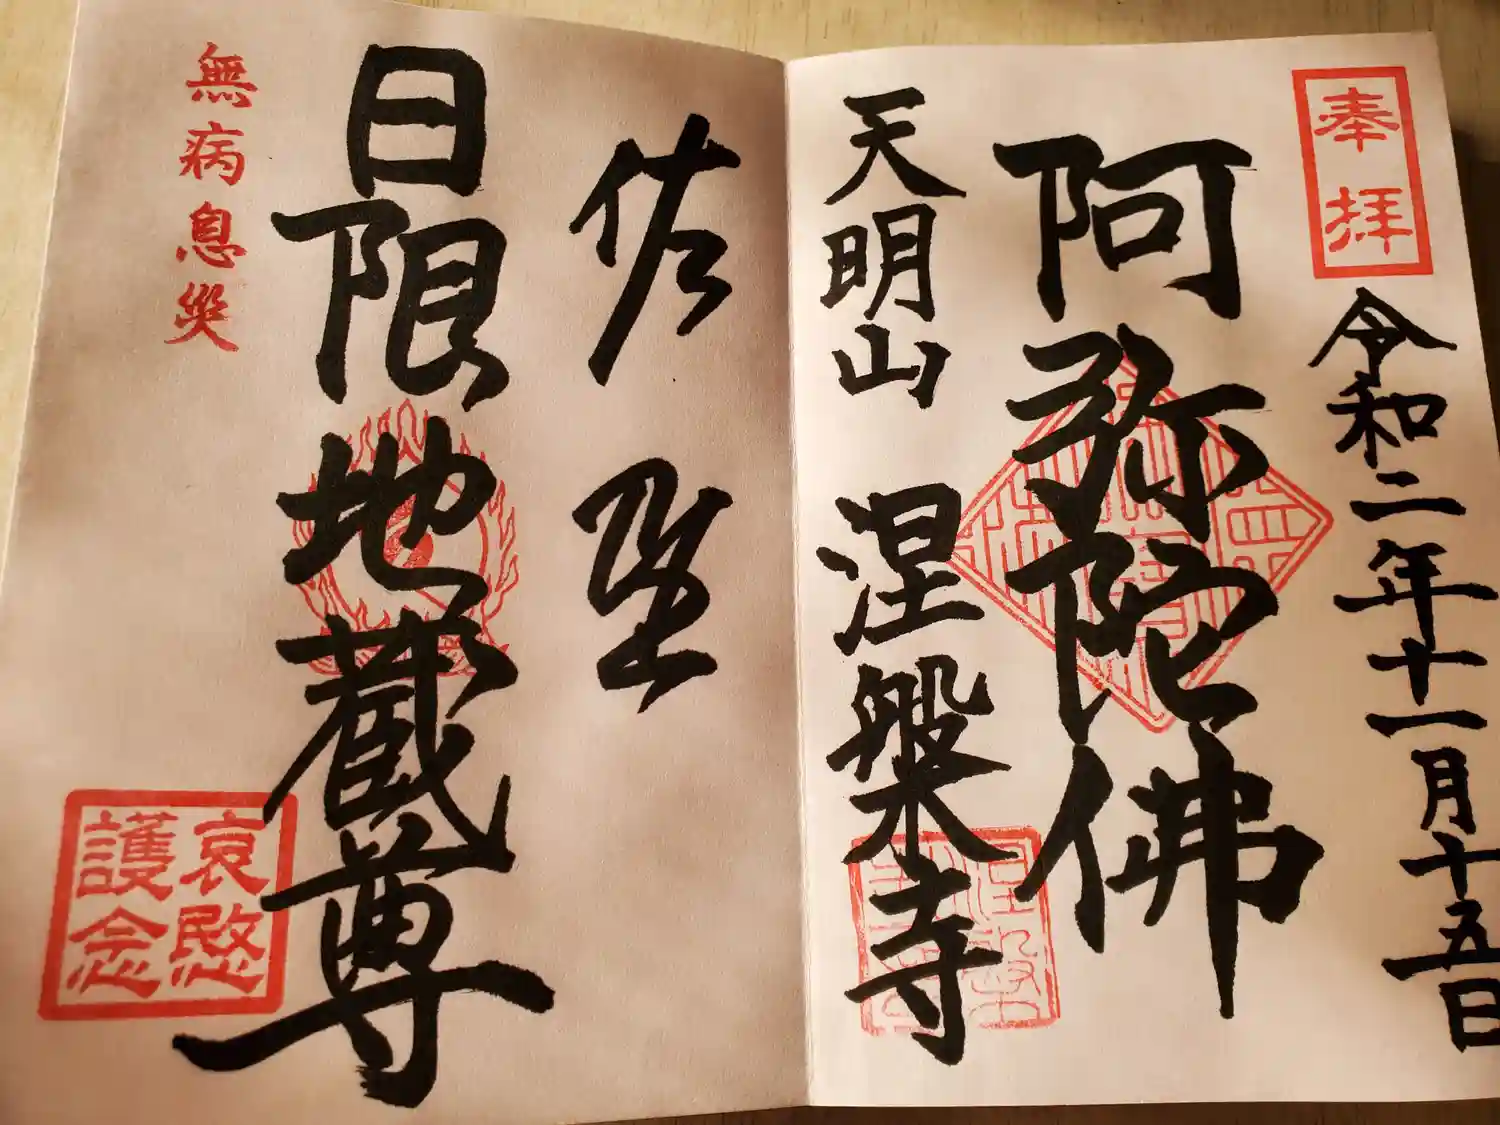 奉拝
令和二年十一月十五日
阿弥陀佛
天明山 涅槃寺
佐
日限地蔵尊
無病息災
哀愍
護念